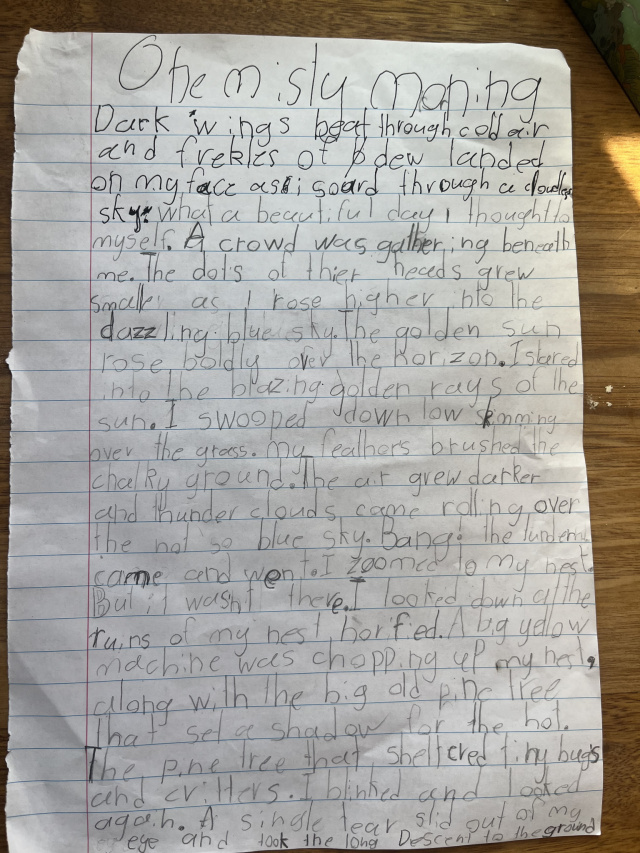 One misty morning
Dark wings beat through cold air
and frekles of dew landed
on my face as i soard through a cloudless
sky. what a beautiful day i thought to
myself. A crowd was gathering beneath
me. The dots of thier heceds grew
smaller as I rose higher into the
dazzling blue sky. The golden sun
rose boldly over the horizon. I stared
into the blazing golden rays of the
sun. I swooped down low skimming
over the grass. my feathers brushed the
chalky ground. The air grew darker
and thunder clouds came rolling over
the not so blue sky. Bang! the
came and went. I zoomed to my nest.
But it wasnt there. I looked down at the
ruins of my nest horified. A big yellow
machine was chopping up my nest,
along with the big old pine tree
that set a shadow for the hot.
The pine tree that sheltered tiny bugs
and critters. I blinked and looked
again. A single tear slid out of my
eye and took the long Descent to the ground